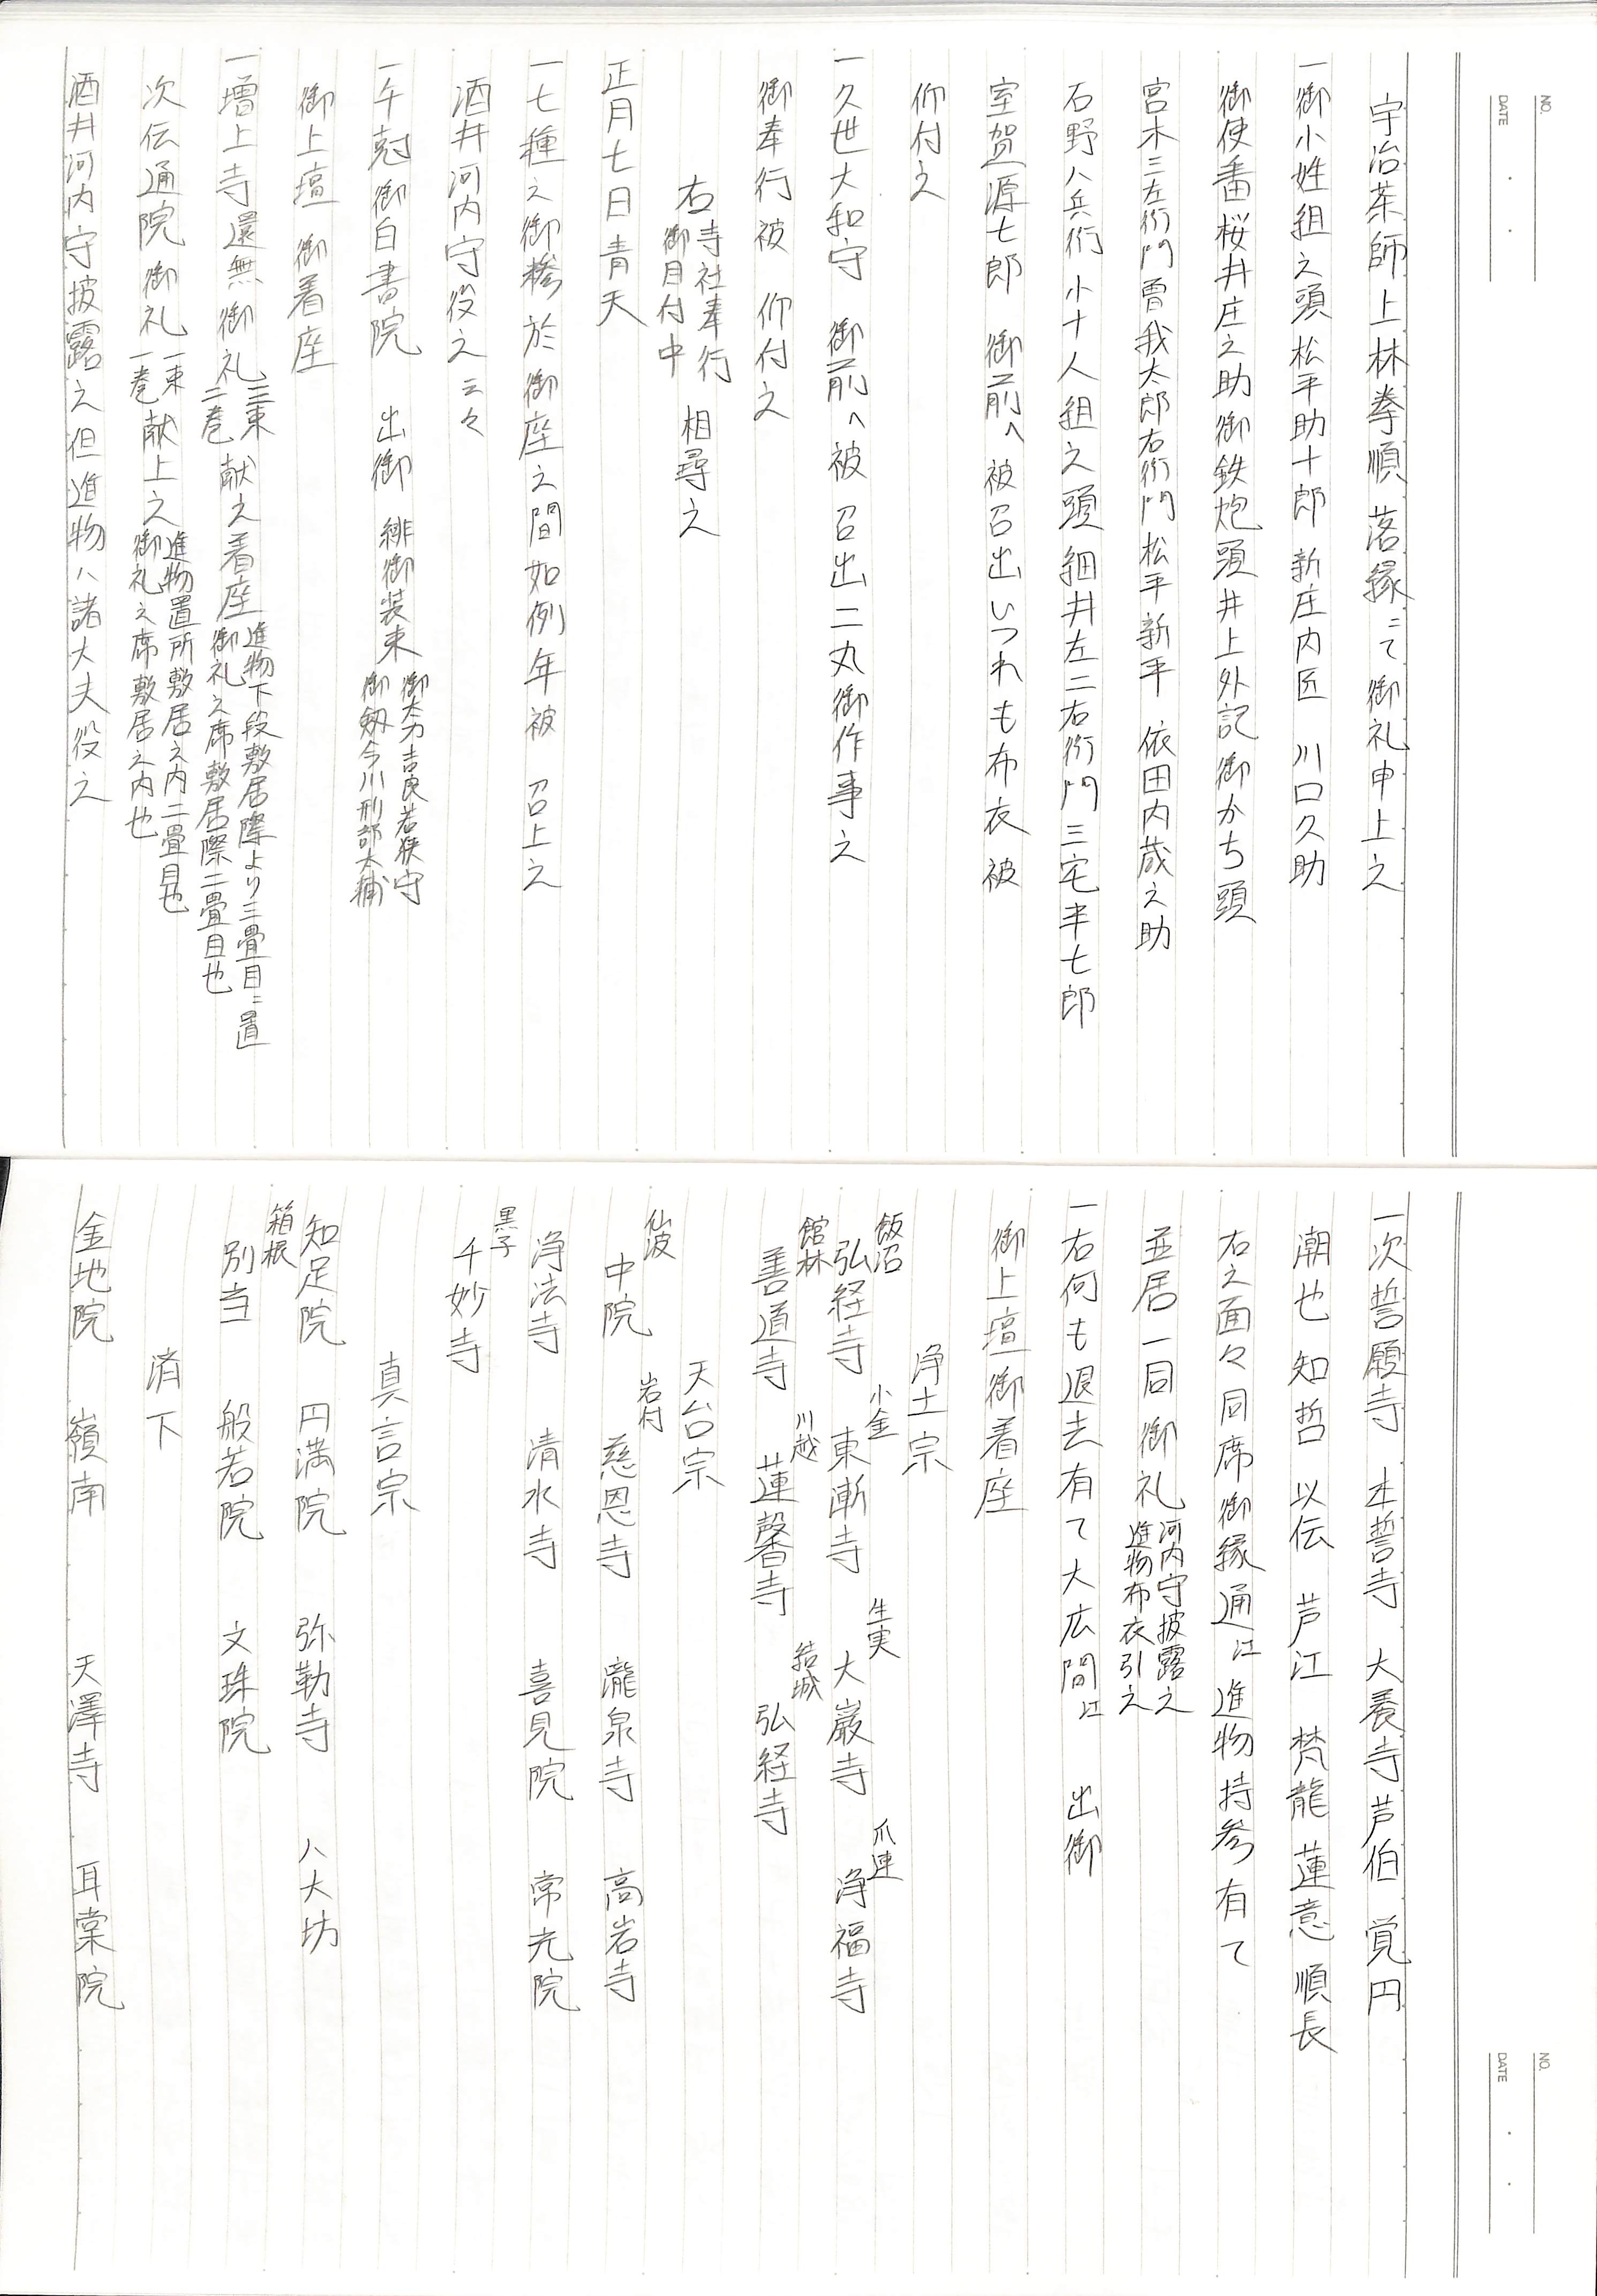 NO.
DATE
宇治茶師上林峯順落縁ニて御礼申上之
一御小姓組之頭松平助十郎 新庄内匠 川口久助
御使番桜井庄之助御鉄炮頭井上外記御かち頭
宮木三左衛門曽我太郎右衛門松平新平 依田内蔵之助
石野八兵衛小十人組之頭細井左二右衛門三宅半七郎
室賀源七郎 御前へ被召出いつれも布衣被
仰付之
一久世大和守 御前へ被召出二丸御作事之
御奉行被 仰付之
右寺社奉行
御目付中 相尋之
正月七日青天
一七種之御糝於御座之間如例年被 召上之
酒井河内守役之云々
一午剋御白書院 出御 緋御装束 御太刀吉良若狭守
御劔今川刑部太輔
御上壇御着座
一増上寺還無御礼 三束
二巻 献之着座 進物下段敷居際より三畳目ニ置
御礼之席敷居際二畳目也
次伝通院御礼 一束
一巻 献上之 進物置所敷居之内二畳目也
御礼之席敷居之内也
酒井河内守披露之但進物ハ諸大夫役之
NO.
DATE
一次誓願寺 本誓寺 大養寺芦伯 覚円
潮也 知哲 以伝 芦江 梵龍 蓮意 順長
右之面々同席御縁通江進物持参有て
並居一同御礼 河内守披露之
進物布衣引之
一右何も退去有て大広間江 出御
御上壇御着座
浄土宗
飯沼 弘経寺 小金 東漸寺 生実 大巌寺 爪連 浄福寺
館林 善道寺 川越 蓮馨寺 結城 弘経寺
天台宗
仙波 中院 岩付 慈恩寺 瀧泉寺 高岩寺
浄法寺 清水寺 喜見院 常光院
黒子 千妙寺
真言宗
知足院 円満院 弥勒寺 八大坊
箱根 別当 般若院 文珠院
済下
金地院 嶺南 天澤寺 耳棠院